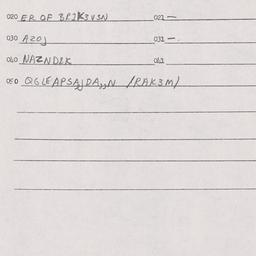 020 ER OF BPJK3VSN 021 —
030 AZOJ 031 —
040 NAZNDLK 041
050 QGLEAPSAJDA,,N /RAK3M/